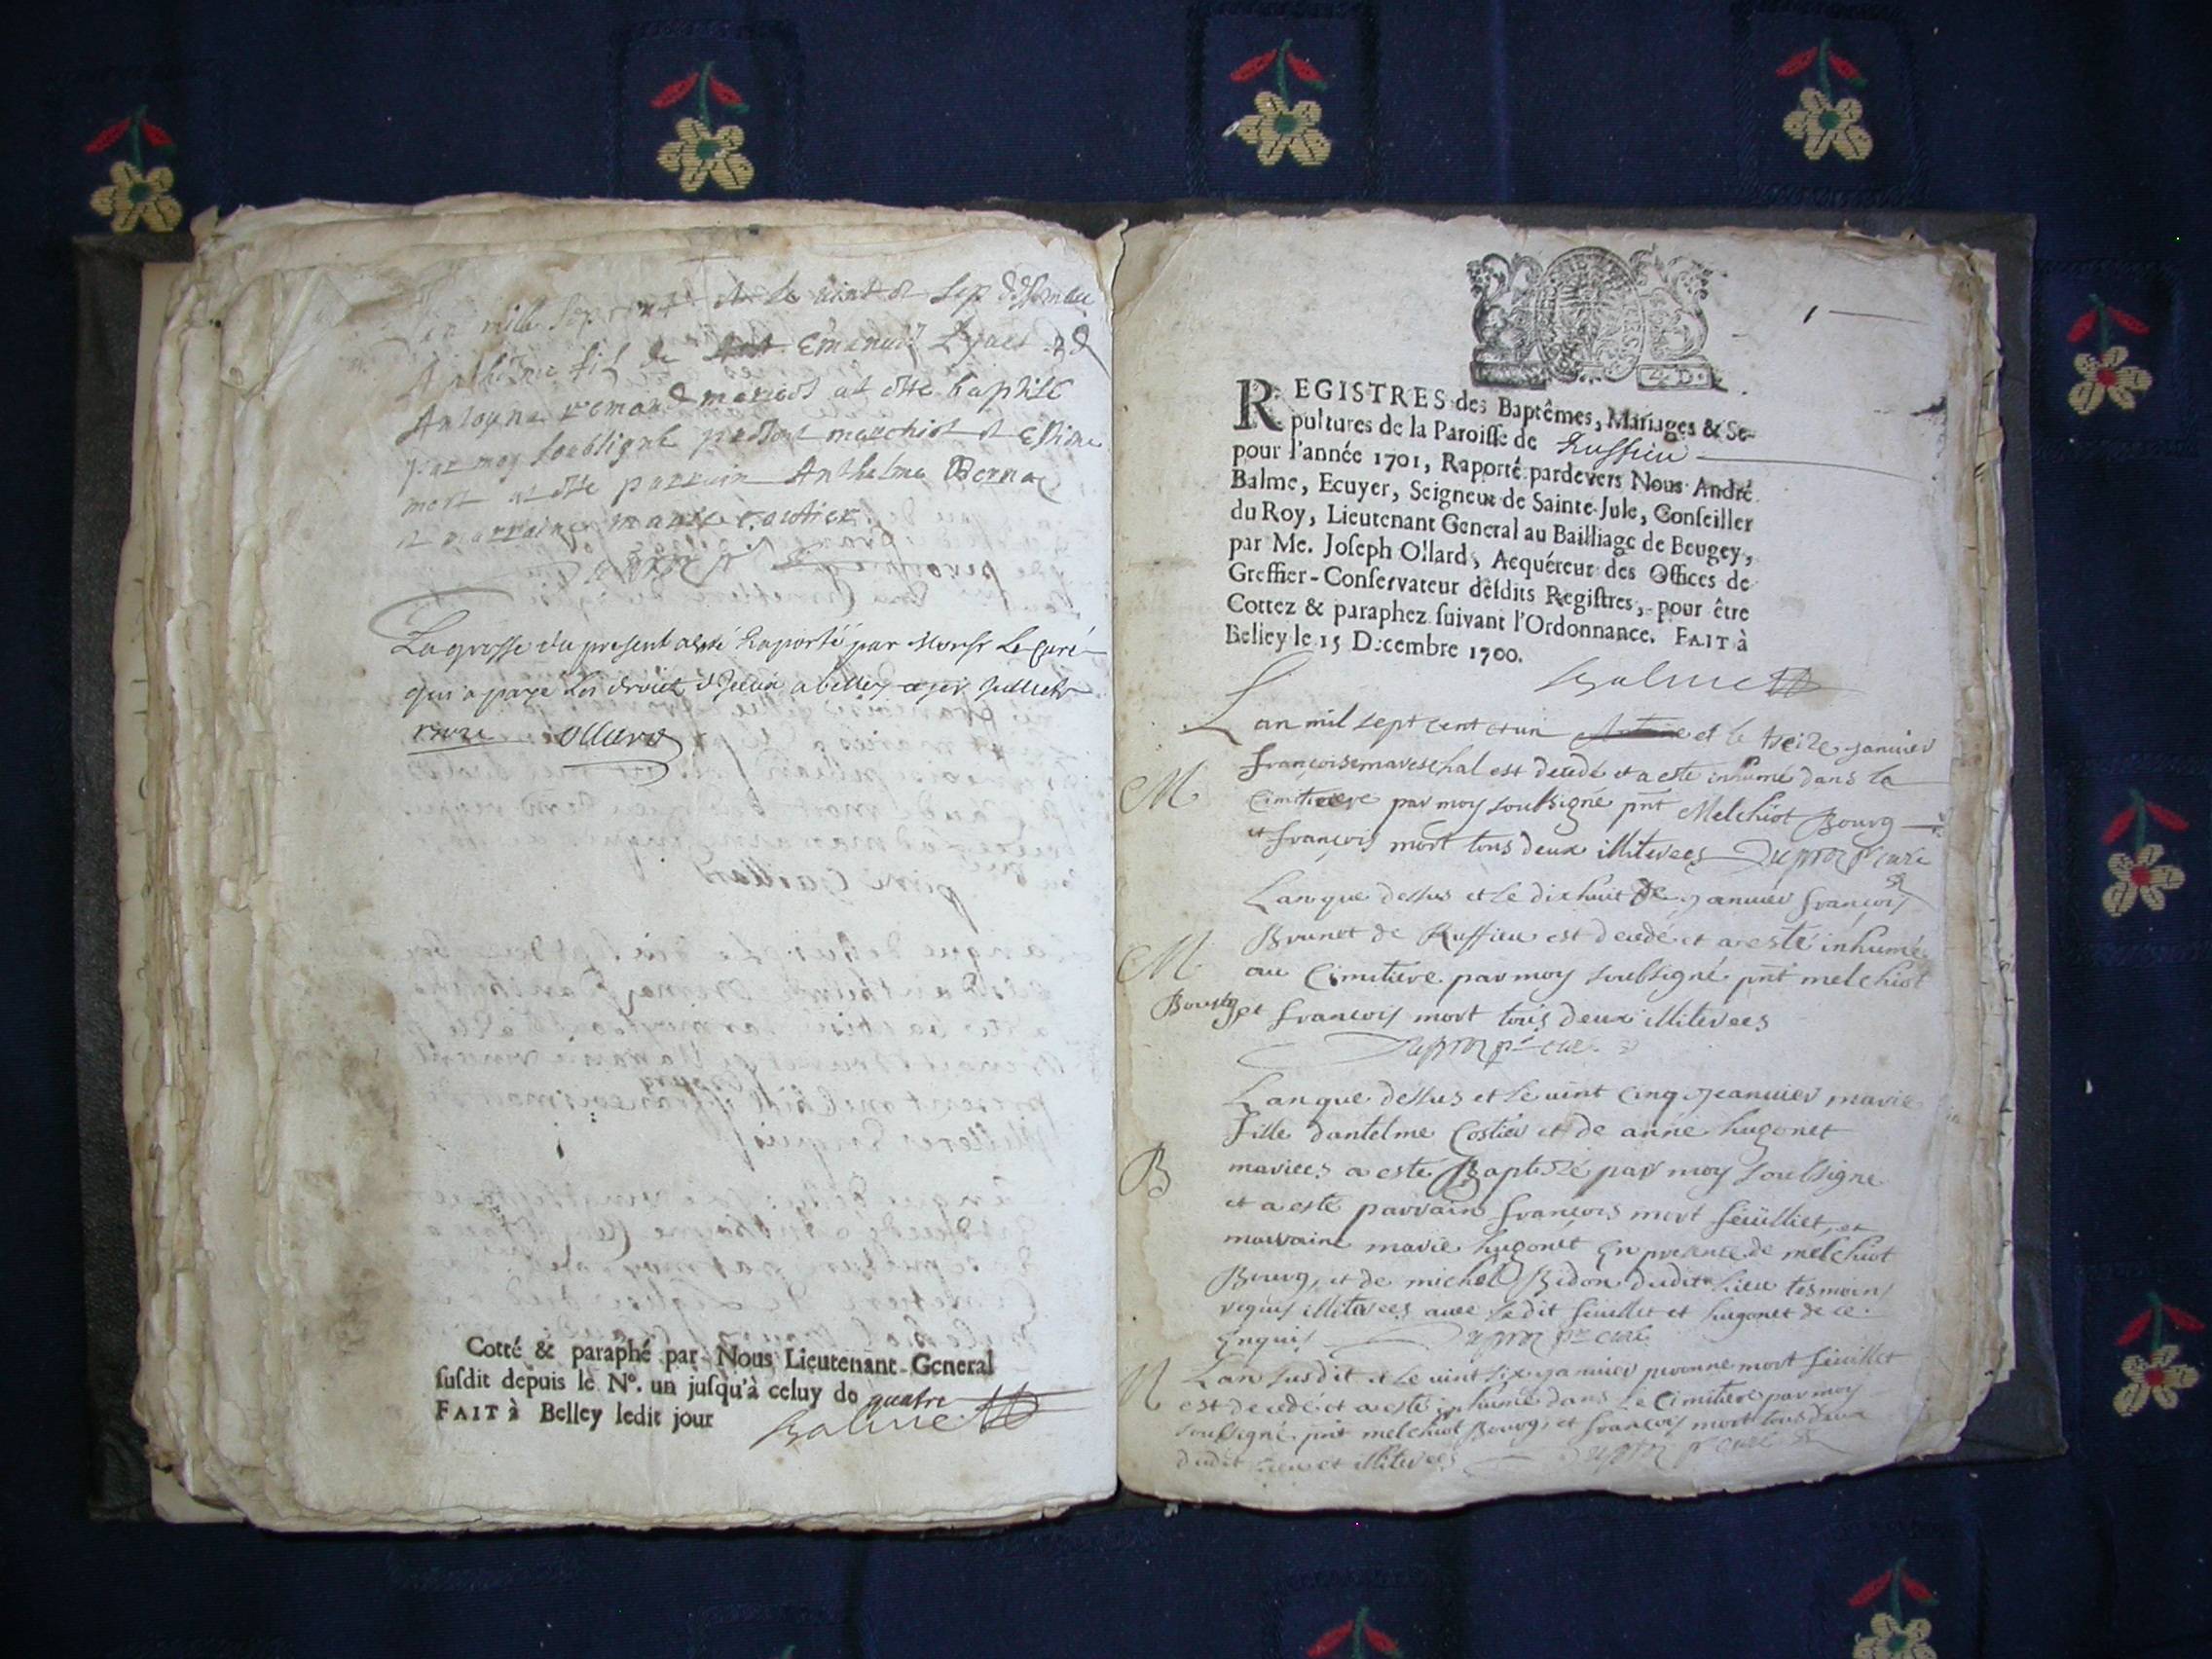 mille sept cent et le vint & sep
Anthelme fil de Emanuel
Antoyne mariés at esté baptisé
par moy soubsigné present melchiot &
mort at esté parrain Anthelme Bernac
& marraine marie costier
La grosse du present a esté raporté par Monsr Le Curé
qui a payé les droict a belley ce juillet
1701 ollard
Cotté & paraphé par Nous Lieutenant General
susdit depuis le N°. un jusqu'à celuy de quatre
FAIT à Belley ledit jour Balme
1
REGISTRES des Baptêmes, Mariages & Se-
pultures de la Paroisse de Ruffieu
pour l'année 1701, Raporté pardevers Nous André
Balme, Ecuyer, Seigneur de Sainte-Jule, Conseiller
du Roy, Lieutenant General au Bailliage de Beugey,
par Me. Joseph Ollard, Acquéreur des Offices de
Greffier-Conservateur desdits Registres, pour être
Cottez & paraphez suivant l'Ordonnance. FAIT à
Belley le 15 Decembre 1700.
Balme
Lan mil sept cent et un et le treize janvier
françoise mareschal est decedé et a esté inhumé dans la
M
Cimitiere par moy soubsigné pnt Melchiot Bourg
et françois mort tous deux illiterees Dupraz pr curé
Lan que dessus et le dixhuit de janvier françois
Brunet de Ruffieu est decedé et a esté inhumé
M
au Cimitiere par moy soubsigné pnt melchiot
Bourg et françois mort tous deux illiterees
Dupraz pr curé
Lan que dessus et le vint cinq jeanvier marie
fille dantelme Costier et de anne hugonet
B
mariees a esté Baptizé par moy soubsigné
et a esté parrain françois mort feuilliet, et
marraine marie hugonet en presence de melchiot
Bourg, et de michel Bidon dudit lieu tesmoins
requis illiterees avec ledit feuillet et hugonet de ce
enquis Dupraz pr curé
M
Lan susdit et le vint six janvier peronne mort feuillet
est decedé et a esté inhumé dans le Cimitiere par moy
soubsigné pnt melchiot Bourg, et françois mort tous deux
dudit lieu et illiterees Dupraz pr curé